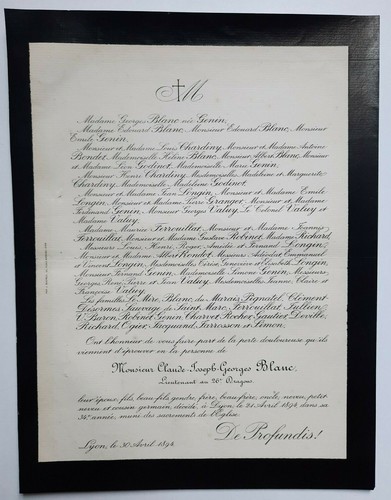 Madame Georges Blanc née Genin,
Madame Edouard Blanc, Monsieur Edouard Blanc, Monsieur
Emile Genin,
Monsieur et Madame Louis Chardiny, Monsieur et Madame Antoine
Bondet, Mademoiselle Hélène Blanc, Monsieur Albert Blanc, Monsieur
et Madame Léon Godinot, Mademoiselle Marie Genin,
Monsieur Henri Chardiny, Mademoiselle Madeleine et Marguerite
Chardiny, Mademoiselle Madeleine Godinot,
Monsieur et Madame Jean Longin, Monsieur et Madame Emile
Longin, Monsieur et Madame Pierre Granger, Monsieur et Madame
Ferdinand Genin, Monsieur Georges Valuy, Le Colonel Valuy et
Madame Valuy,
Madame Maurice Perrouillat, Monsieur et Madame François
Perrouillat, Monsieur et Madame Gustave Robinet, Madame Richard
Messieurs Louis, Henri, Roger, Amédée et Fernand Longin,
Monsieur et Madame Albert Rondot, Messieurs Emmanuel
et Vincent Longin, Mesdemoiselles et Elisabeth Longin,
Monsieur Fernand Genin, Mademoiselle Simone Genin, Messieurs
Georges, René, Pierre et Jean Valuy, Mesdemoiselles Jeanne, Claire et
Françoise Valuy,
Les familles Le Mire, Blanc, du Marais, Pignatel, Clément-
Désormes, Sauvage de Saint Marc, Perrouillat, Jullien,
Vve Baron, Robinet, Genin, Charvet, Rocher, Gautier, Deville,
Richard, Ogier, Jacquand, Sarrosson et Simon,
Ont l'honneur de vous faire part de la perte douloureuse qu'ils
viennent d'éprouver en la personne de
Monsieur Claude-Joseph-Georges Blanc,
Lieutenant au 26e Dragons,
leur époux, fils, beau-fils, gendre, frère, beau-frère, oncle, neveu, petit-
neveu et cousin germain, décédé, à Dijon, le 21 Avril 1894, dans sa
34e année, muni des sacrements de l'Eglise.
De Profundis!
Lyon, le 30 Avril 1894.